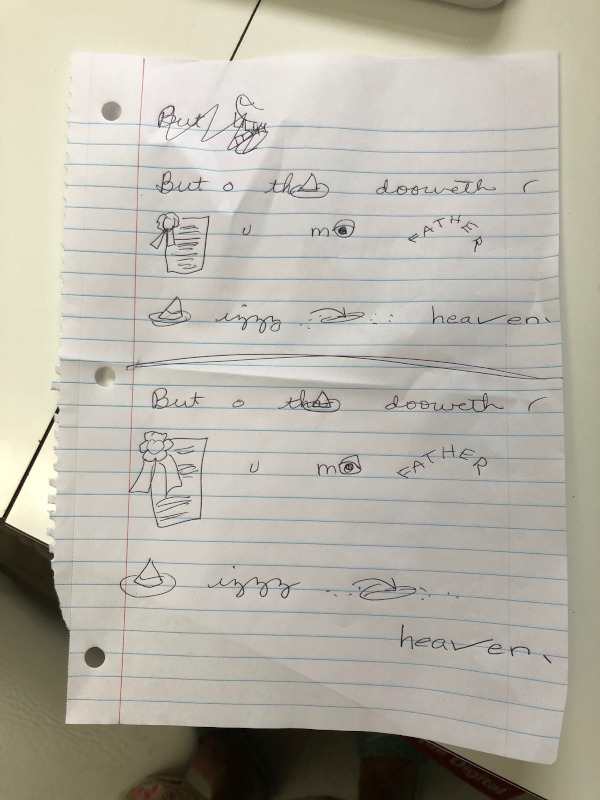 But
But o th dooweth r
u m FATHER
izzy heaven.
But o tha dooweth r
u m FATHER
izzy
heaven.
Digital